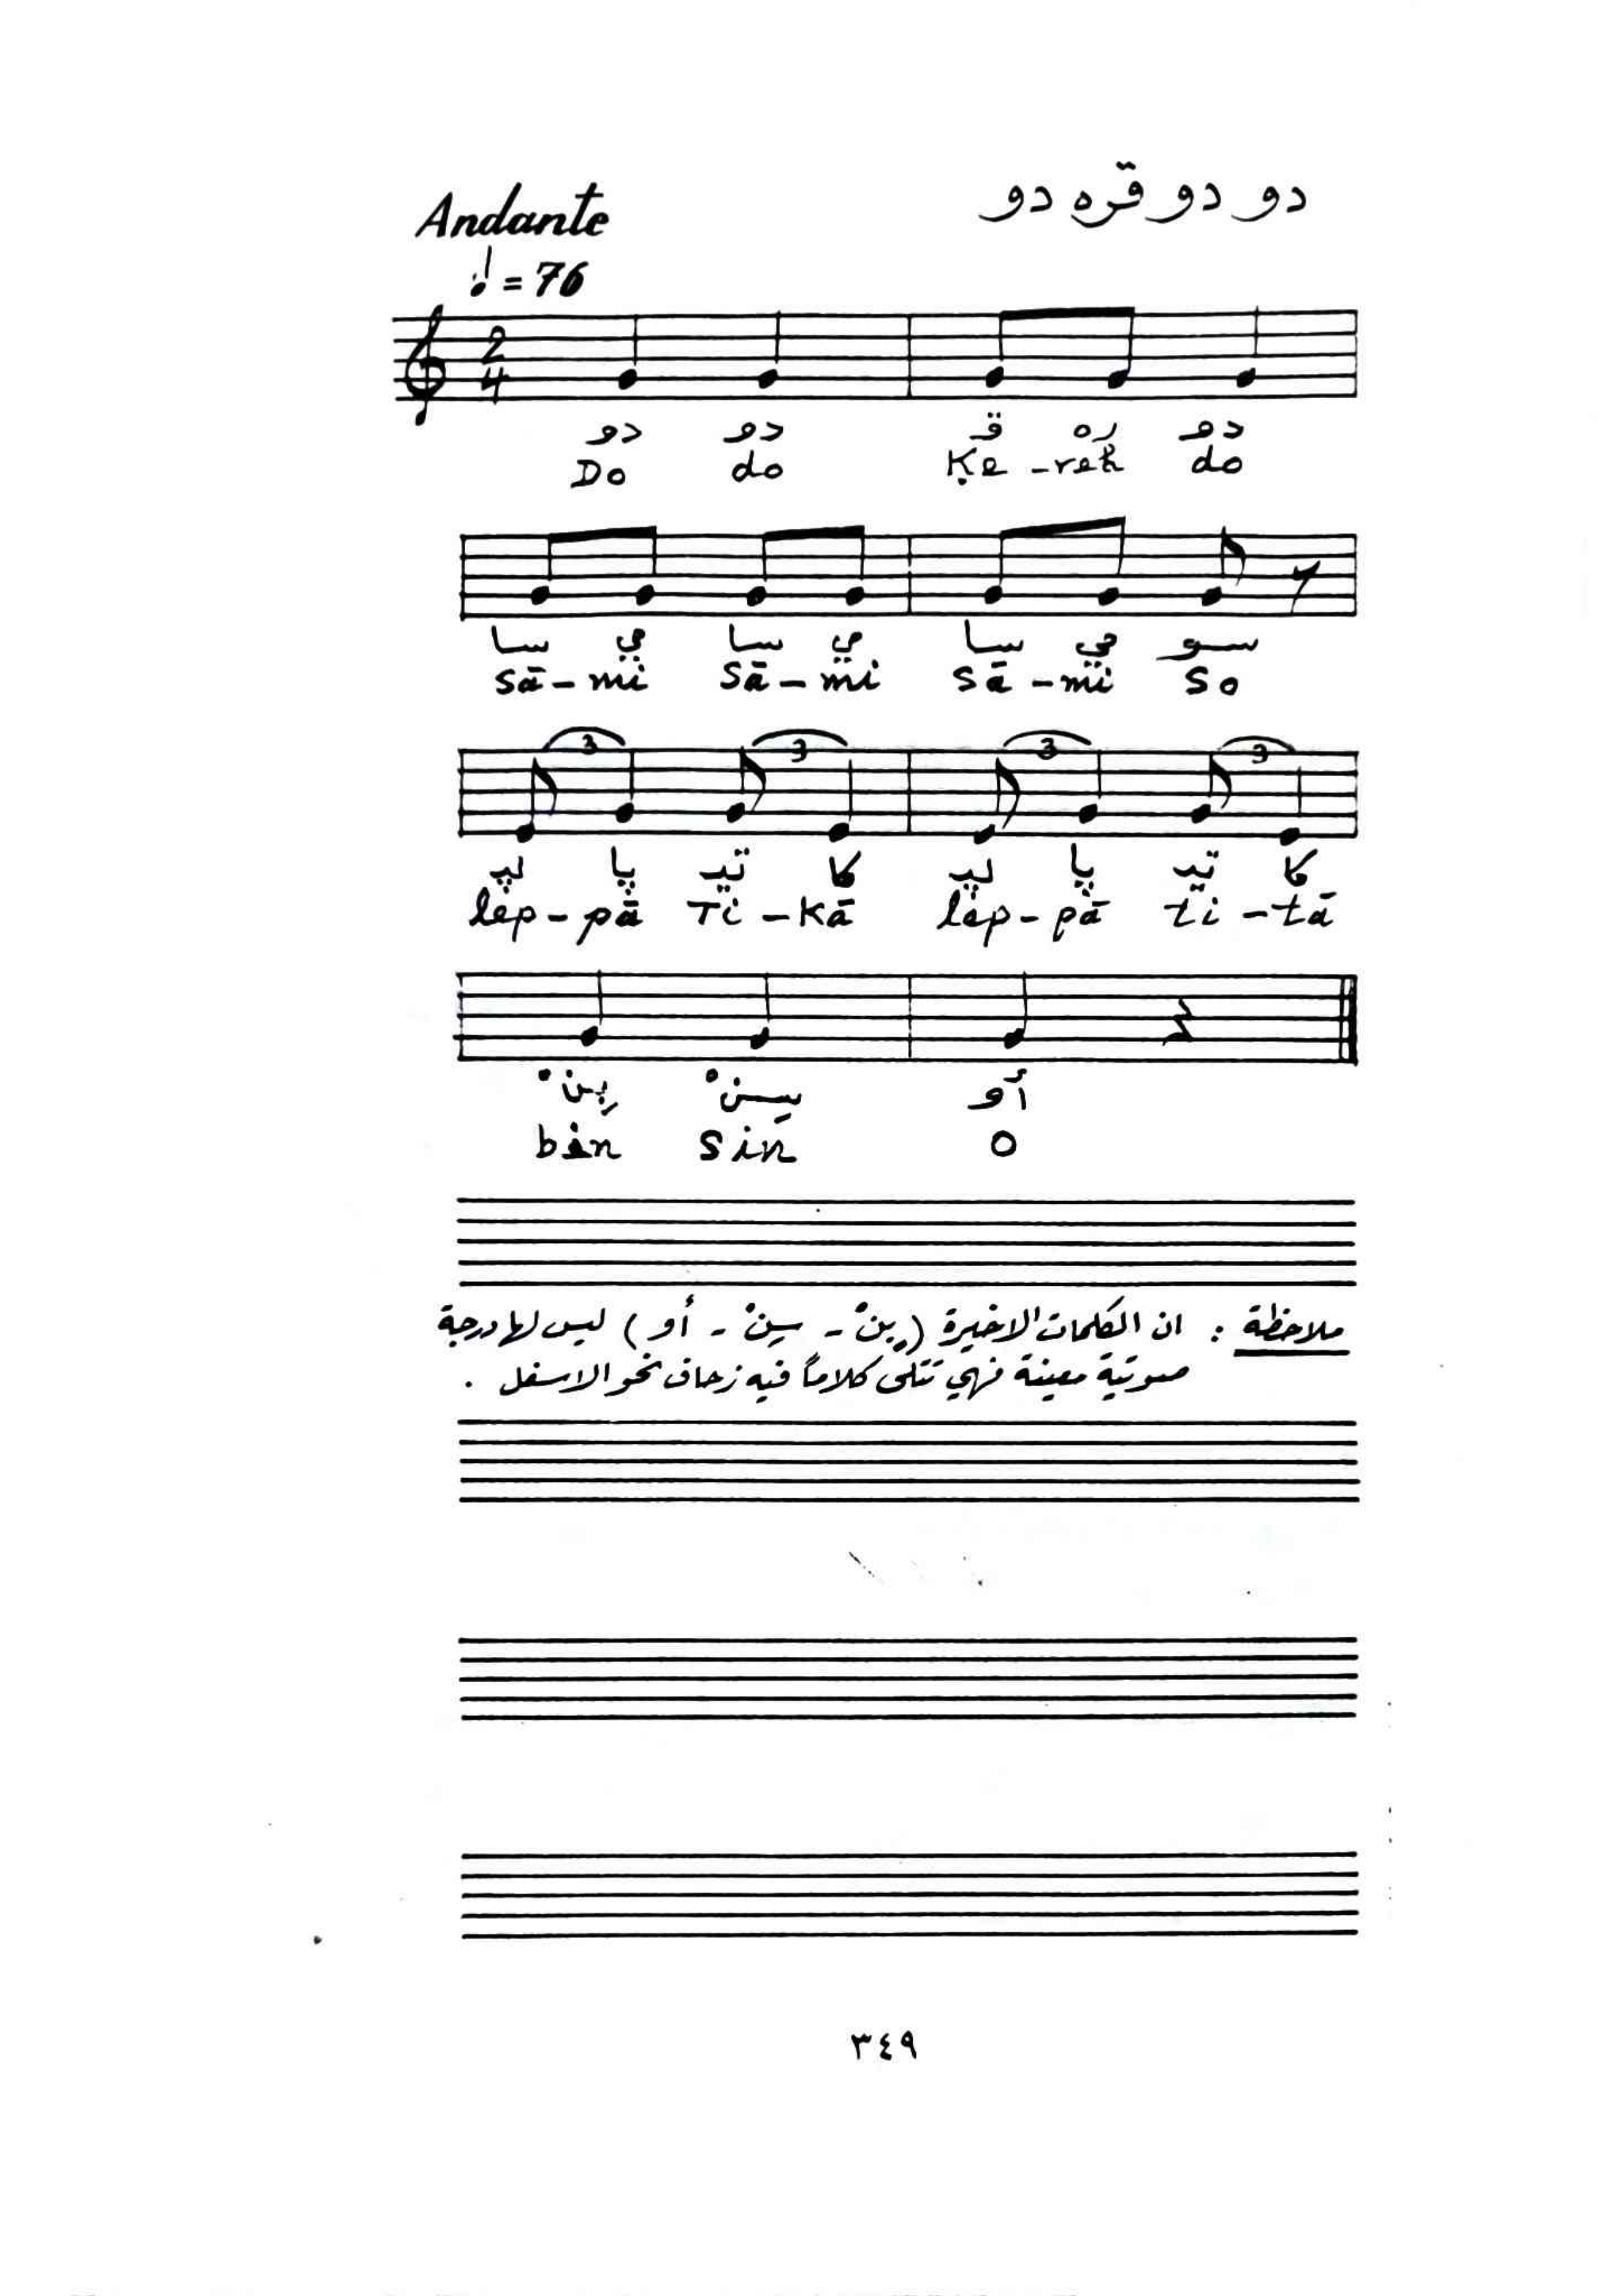 دو دو قره دو
Andante
♩ = 76
2
4
دو دو قـ ره دو
Do do Ḳe -reh do
سا مي سا مي سا مي سو
Sā-mi Sā-mi Sā-mi So
3 3 3 3
لپـ پا تيـ كا لپـ پا تيـ كا
lep-pā Ti-kā lep-pā ti-tā
بِنْ سِنْ أو
bin sin o
ملاحظة : ان الكلمات الاخيرة (بِنْ - سِنْ - أو) ليس لها درجة
صوتية معينة فهي تتلى كلاماً فيه زحاف نحو الاسفل .
٣٤٩